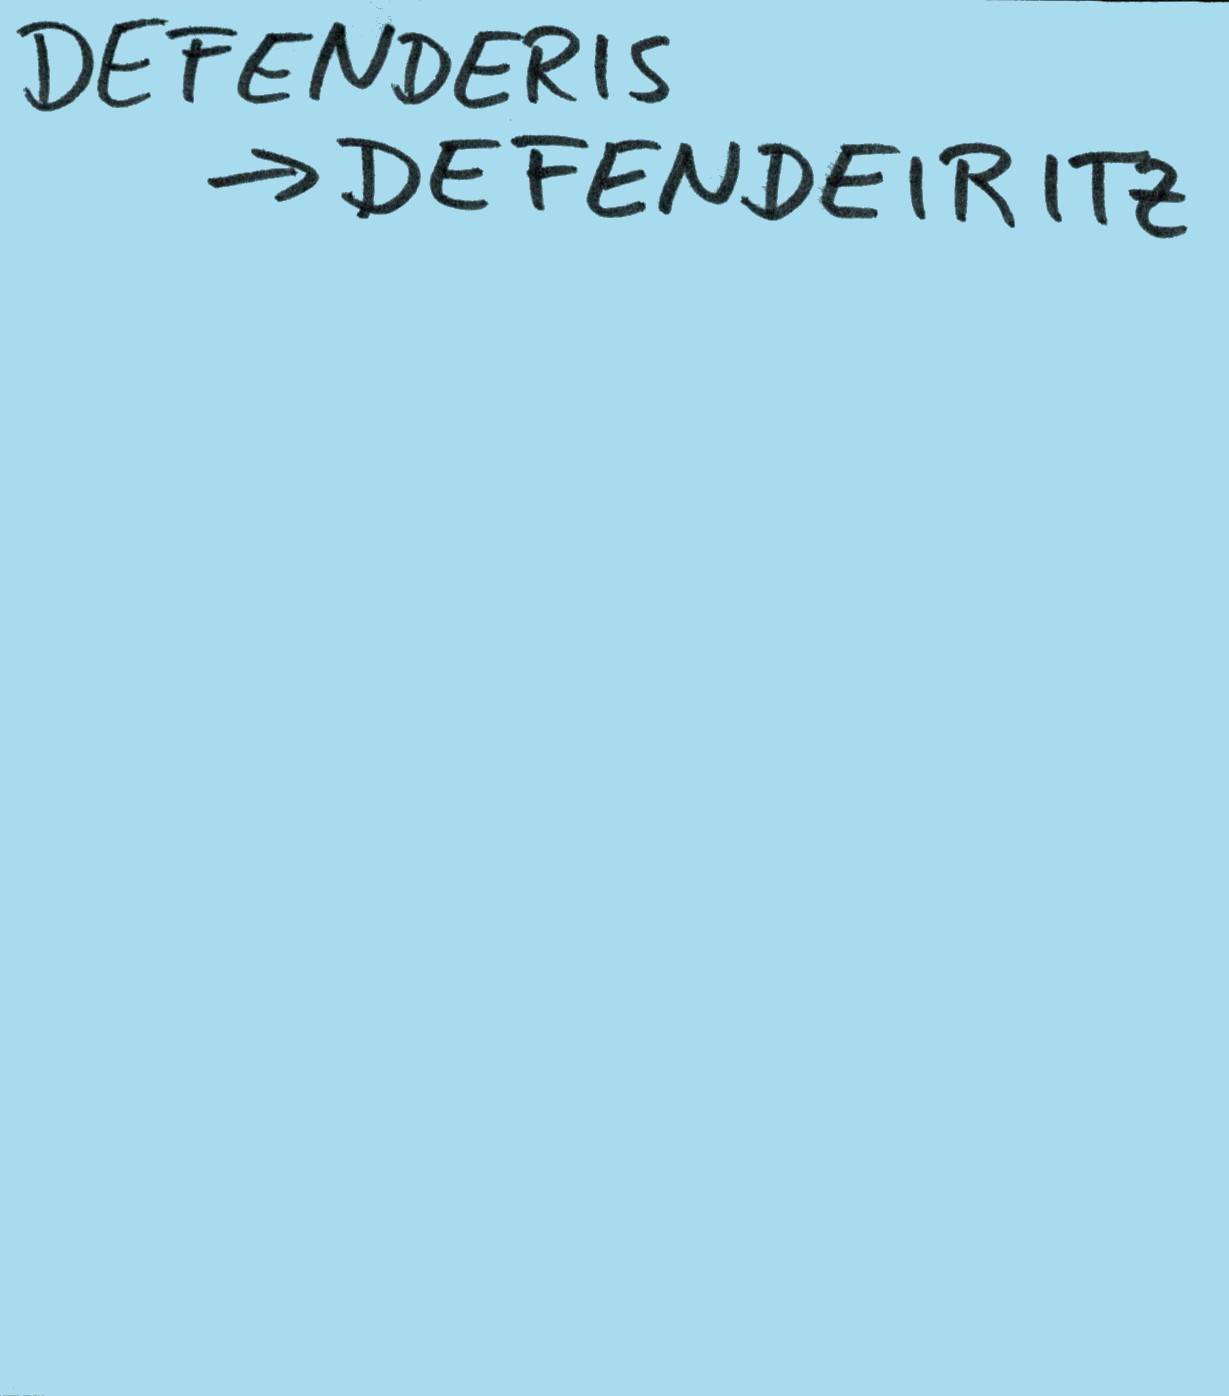 DEFENDERIS
→ DEFENDEIRITZ